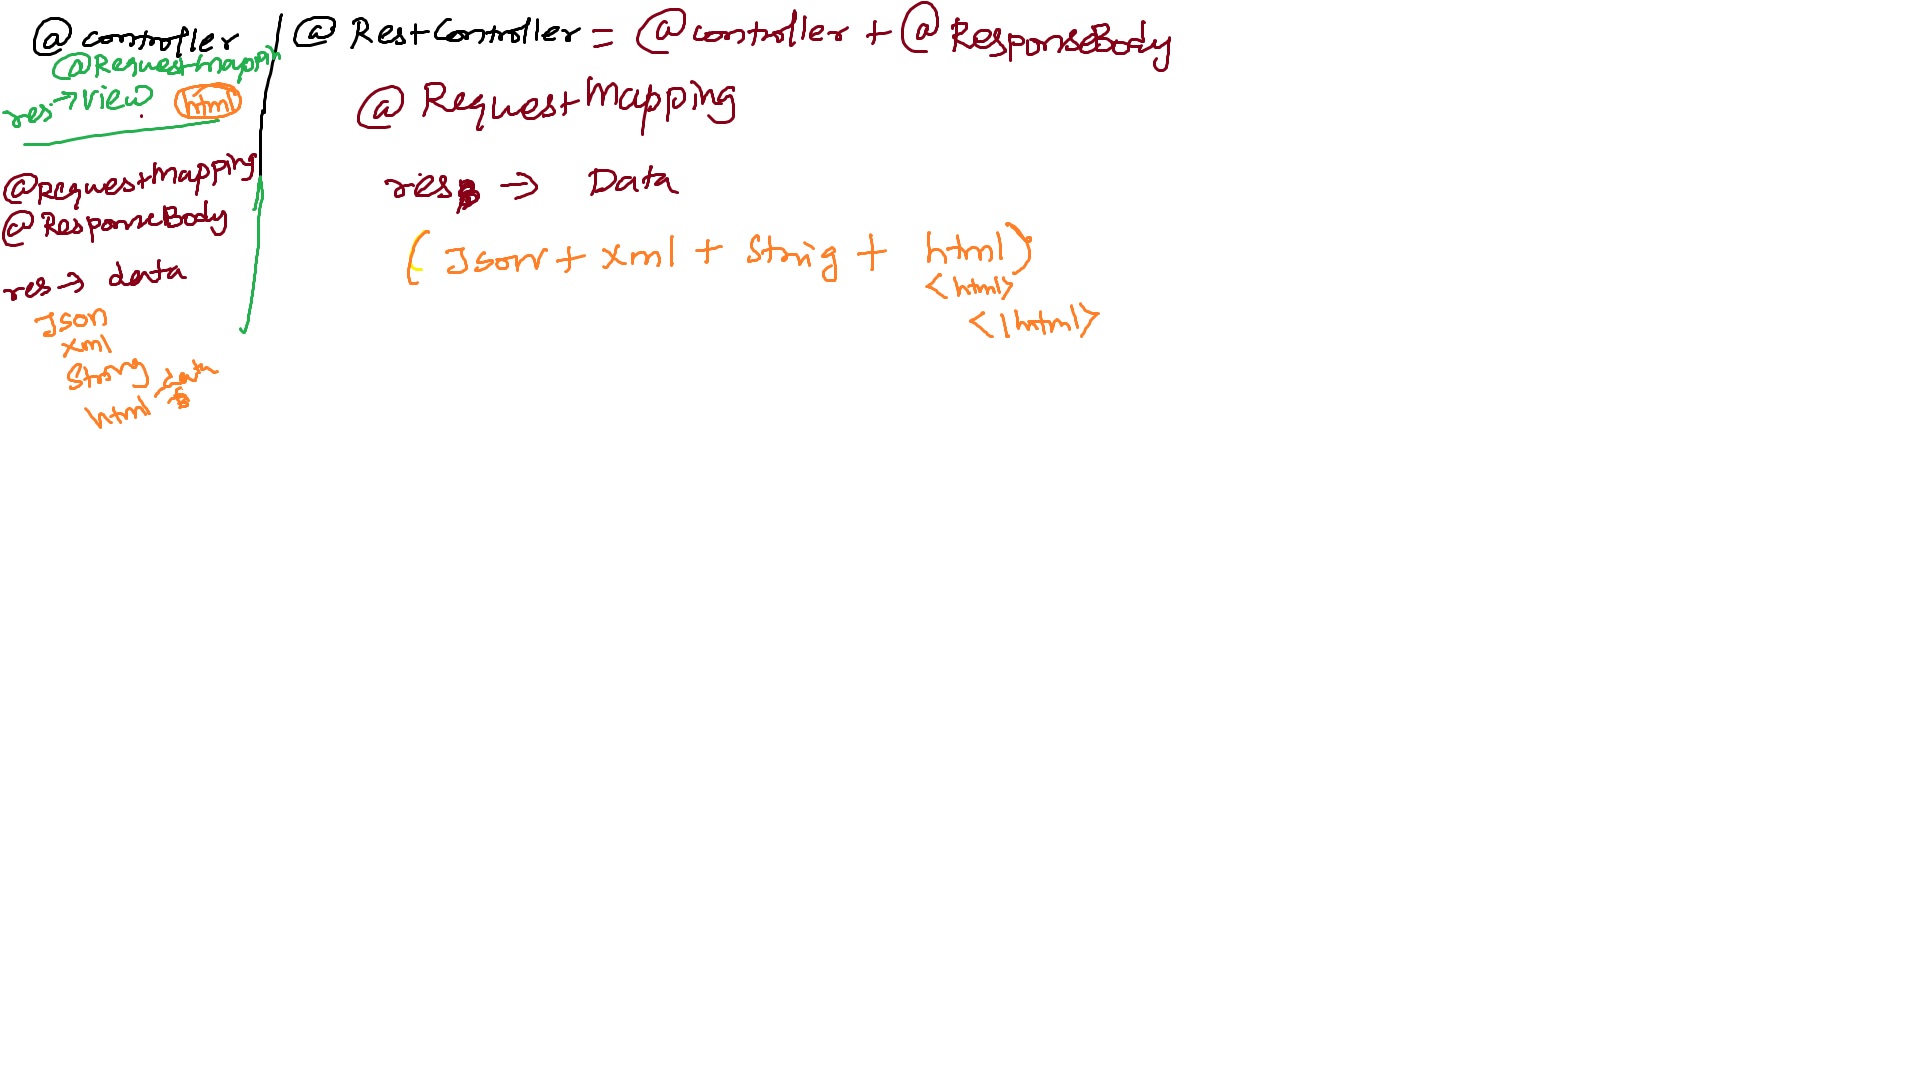 @controller
@RequestMappin
res → view html
@RequestMapping
@ResponseBody
res → data
Json
xml
String
html data
@ RestController = @controller + @ResponseBody
@ RequestMapping
res → Data
( Json + xml + String + html )
<html>
</html>